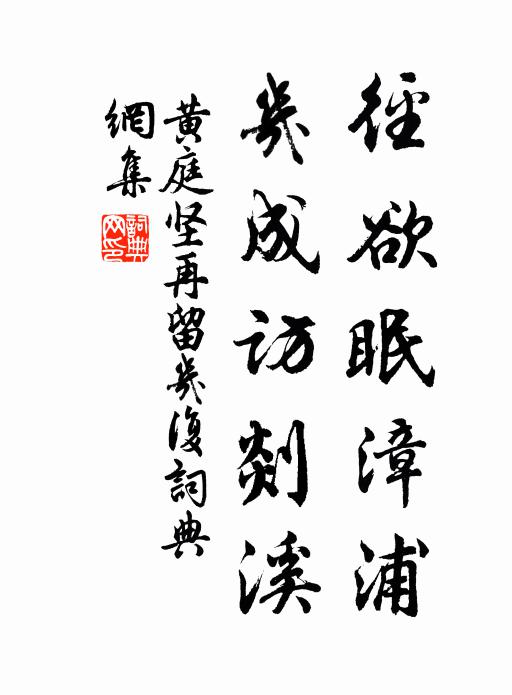 徑欲眠漳浦
幾成訪剡溪
黄庭坚再留幾復詞典
網集
詞典
网印